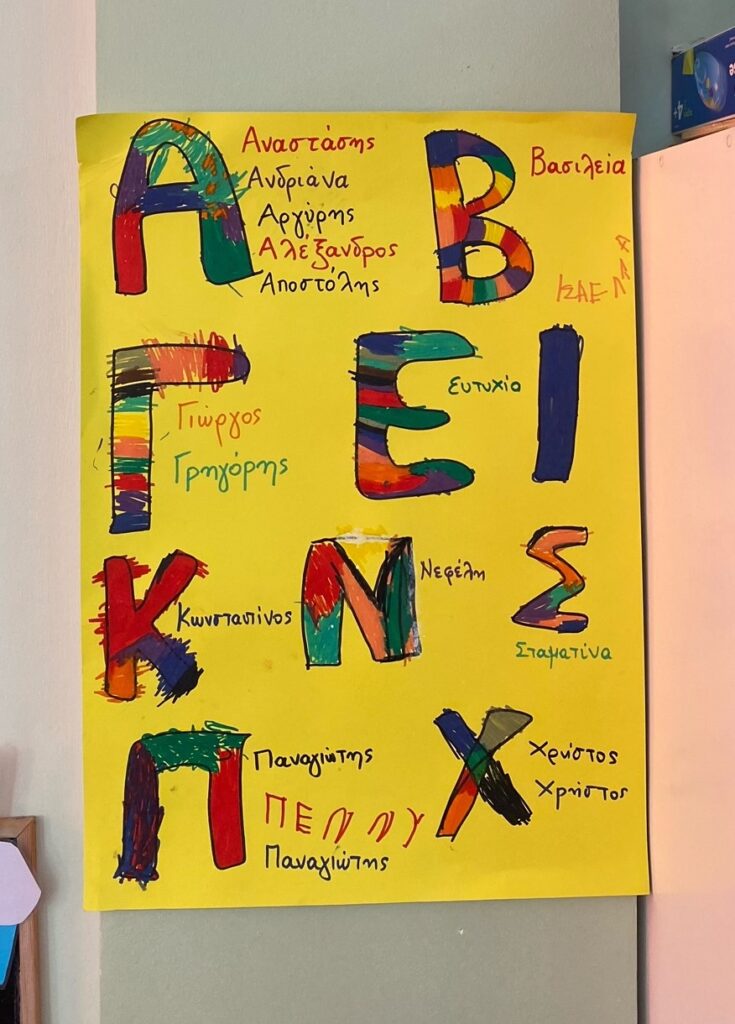 Α
Αναστάσης
Ανδριάνα
Αργύρης
Αλέξανδρος
Αποστόλης
Β
Βασιλεία
ΙΣΑΕΛΛΑ
Γ
Γιώργος
Γρηγόρης
Ε
Ευτυχία
Ι
Κ
Κωνσταντίνος
Ν
Νεφέλη
Σ
Σταματίνα
Π
Παναγιώτης
ΠΕΝΝΥ
Παναγιώτης
Χ
Χρήστος
Χρήστος